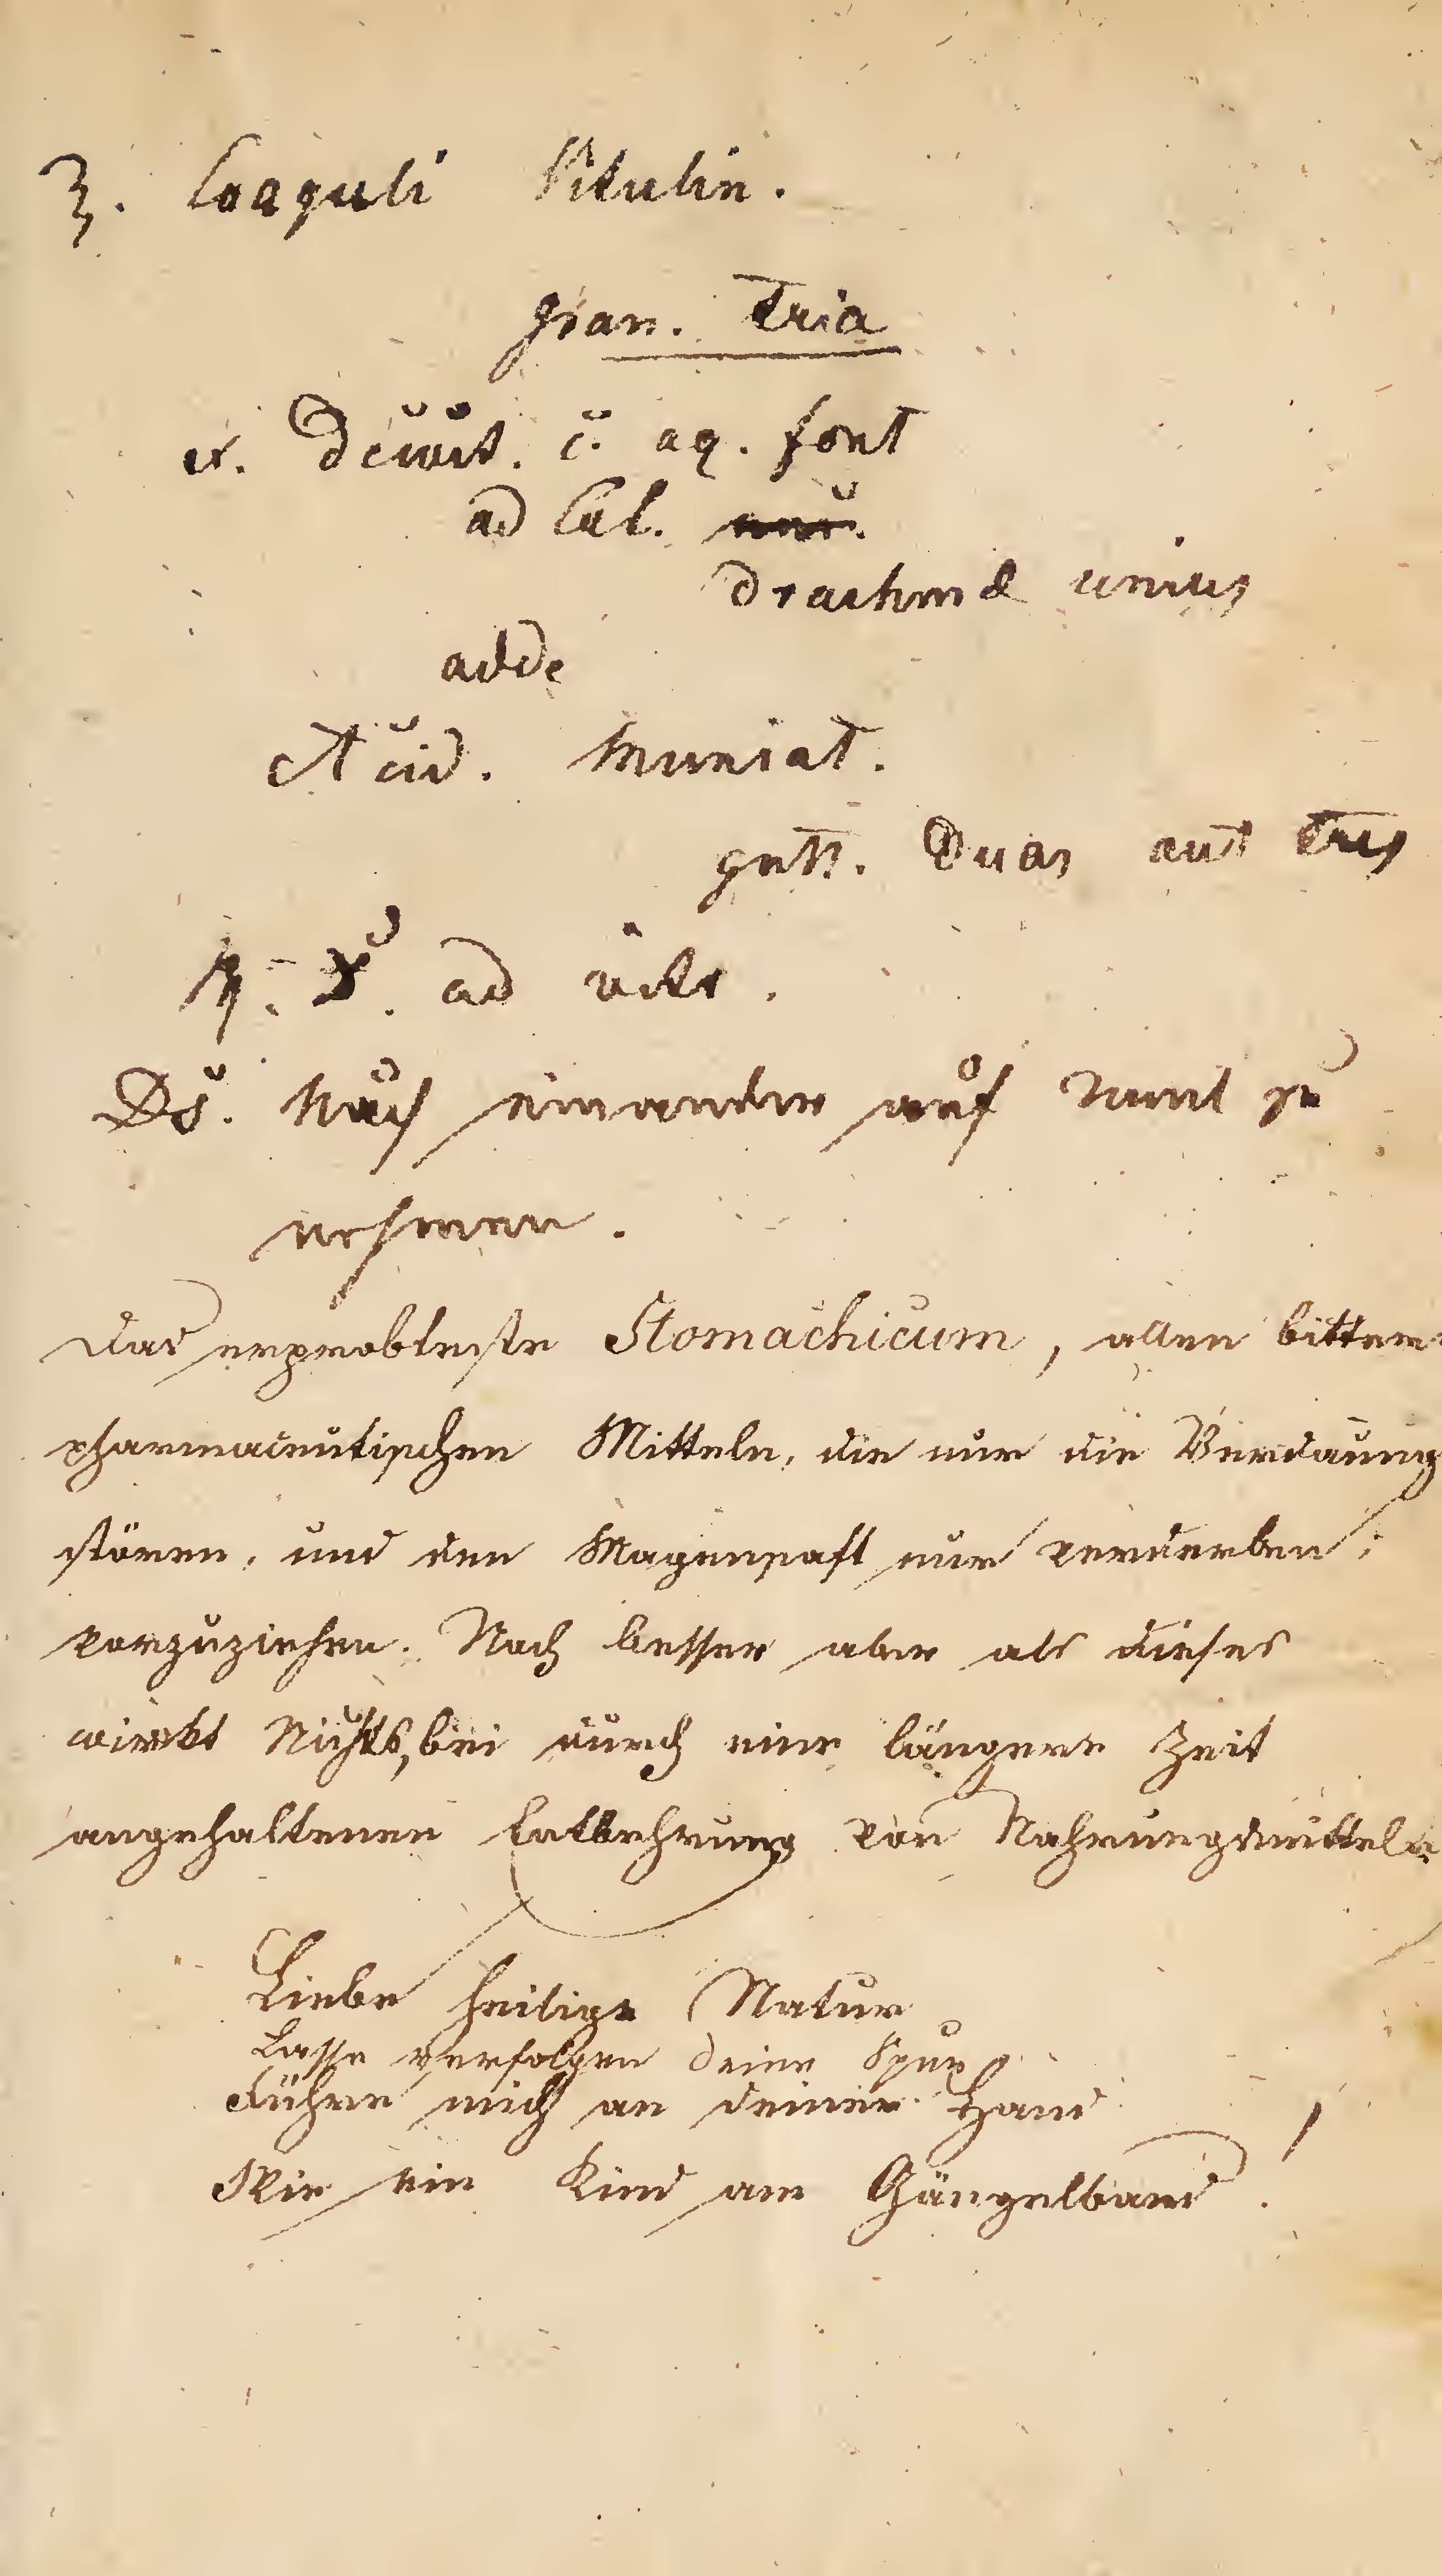 ℞. Coaguli Vitulin.
gran. tria
ex. Decoct. c. aq. font
ad Col.
drachmae unius
adde
Acid. Muriat.
gutt. duas aut tres
M. D. ad vitr.
DS. Nach einander auf zu
nehmen.
Das erprobteste Stomachicum, allen bittern
pharmaceutischen Mitteln, die nur die Verdauung
stören, und den Magensaft nur verderben,
vorzuziehen. Noch besser aber als dieses
wirkt Nichts, bei durch eine längere Zeit
angehaltenen Entbehrung von Nahrungsmitteln
Liebe heilige Natur
Lasse verfolgen deine Spur
Führe mich an deiner Hand
Wie ein Kind am Gängelband!